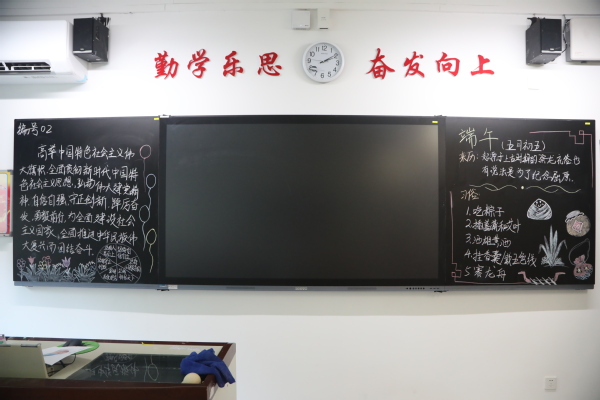 勤学乐思
奋发向上
编号02
高举中国特色社会主义伟
大旗帜,全面贯彻新时代中国特
色社会主义思想,弘扬伟大建党精
神,自信自强,守正创新,踔厉奋
发,勇毅前行,为全面建设社会
主义国家、全面推进中华民族伟
大复兴而团结奋斗。
端午(五月初五)
来历:
有说法是为了纪念屈原.
习俗:
1.吃粽子
2.插菖蒲和艾叶
3.酒雄黄酒
4.挂香囊/戴五色线
5.赛龙舟